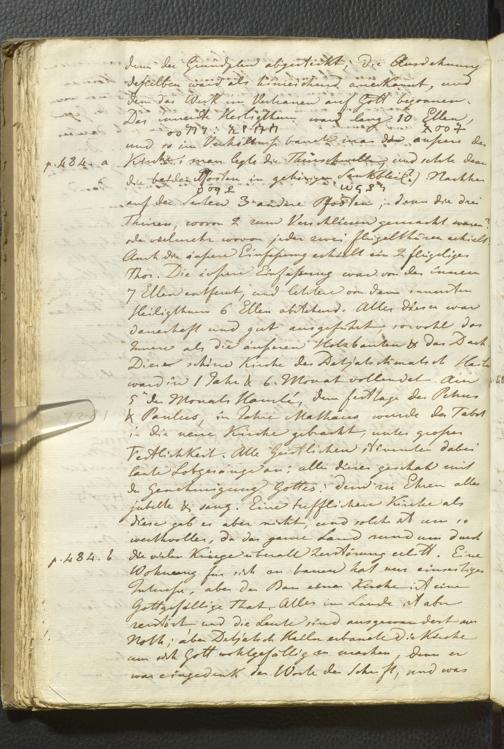 dem der Grundplan abgesteckt; die Ausdehnung
desselben ward als hinreichend anerkannt, und
dem das Werk im Vertrauen auf Gott begonnen.
Das innerste Heiligthum war lang 10 Ellen,
und so im Verhältniss baute man das äussere der
p. 484. a Kirche; man legte die Thürschwellen und setzte dann
die beiden Pfosten in gehöriger Senkblei(?) Nachher
auf den Seiten 3 andere Pfosten, dann die drei
Thüren, wovon 2 zum Verschliessen gemacht waren?
oder vielmehr wovon jeder zwei flügelthüren erhielt
Auch die äussere Einfassung erhielt ein 2 flügeliges
Thor. Die äussere Einfassung war von der innern
7 Ellen entfernt, und letztere von dem innersten
Heiligthum 6 Ellen abstehend. Alles dieses war
dauerhaft und gut ausgeführt, sowohl das
Innere als die äusseren Holzbauten & das Dach
Diese schöne Kirche des Detjatschmatsch Hailu
ward in 1 Jahr & 6 Monat vollendet. Am
5 des Monats Hamle, dem festtage des Petrus
& Paulus, im Jahre Matheus wurde der Tabot
in die neue Kirche gebracht, unter grosser
Festlichkeit. Alle Geistlichen stimmten dabei
laute Lobgesänge an; alles dieses geschah mit
der Genehmigung Gottes; denn zu Ehren alles
jubelte & sang. Eine trefflichere Kirche als
diese gab es aber nicht, und solch ist um so
werthvoller, da das ganze Land rundum durch
p. 484. b die vielen Kriege überall Zerstörung erlitt. Eine
Wohnung für sich zu bauen hat nur einseitiges
Interesse, aber der Bau einer Kirche ist eine
Gottgefällige That. Alles im Lande ist aber
zerstört und die Leute sind ausgewandert aus
Noth; aber Detjatsch Hailu erbaute die Kirche
um sich Gott wohlgefällig zu machen, denn er
war eingedenk der Worte der Schrift, und was